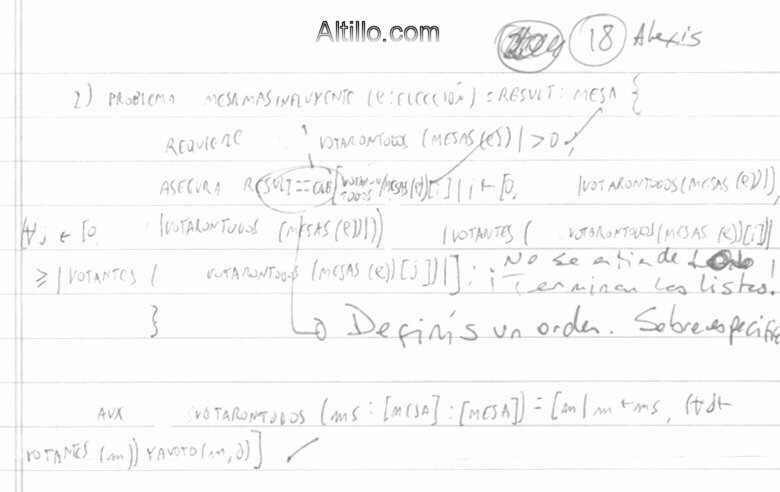 Altillo.com
18 Alexis
2) PROBLEMA MESAMASINFLUYENTE (e: ELECCIÓN) = RESULT: MESA {
REQUIERE | VOTARONTODOS (MESAS(e)) | > 0 ;
ASEGURA RESULT == [VOTARONTODOS(MESAS(e))[i] | i ← [0, |VOTARONTODOS(MESAS(e))|),
(∀j ← [0, |VOTARONTODOS (MESAS(e))|)) |VOTANTES ( VOTARONTODOS(MESAS(e))[i])|
≥ |VOTANTES ( VOTARONTODOS (MESAS(e))[j])|] ; No se entiende
Terminan las listas.
}
Definís un orden. Sobreespecific
AUX VOTARONTODOS (ms: [MESA] : [MESA]) = [m | m ← ms, (∀d ←
VOTANTES (m)) YAVOTO(m, d)]